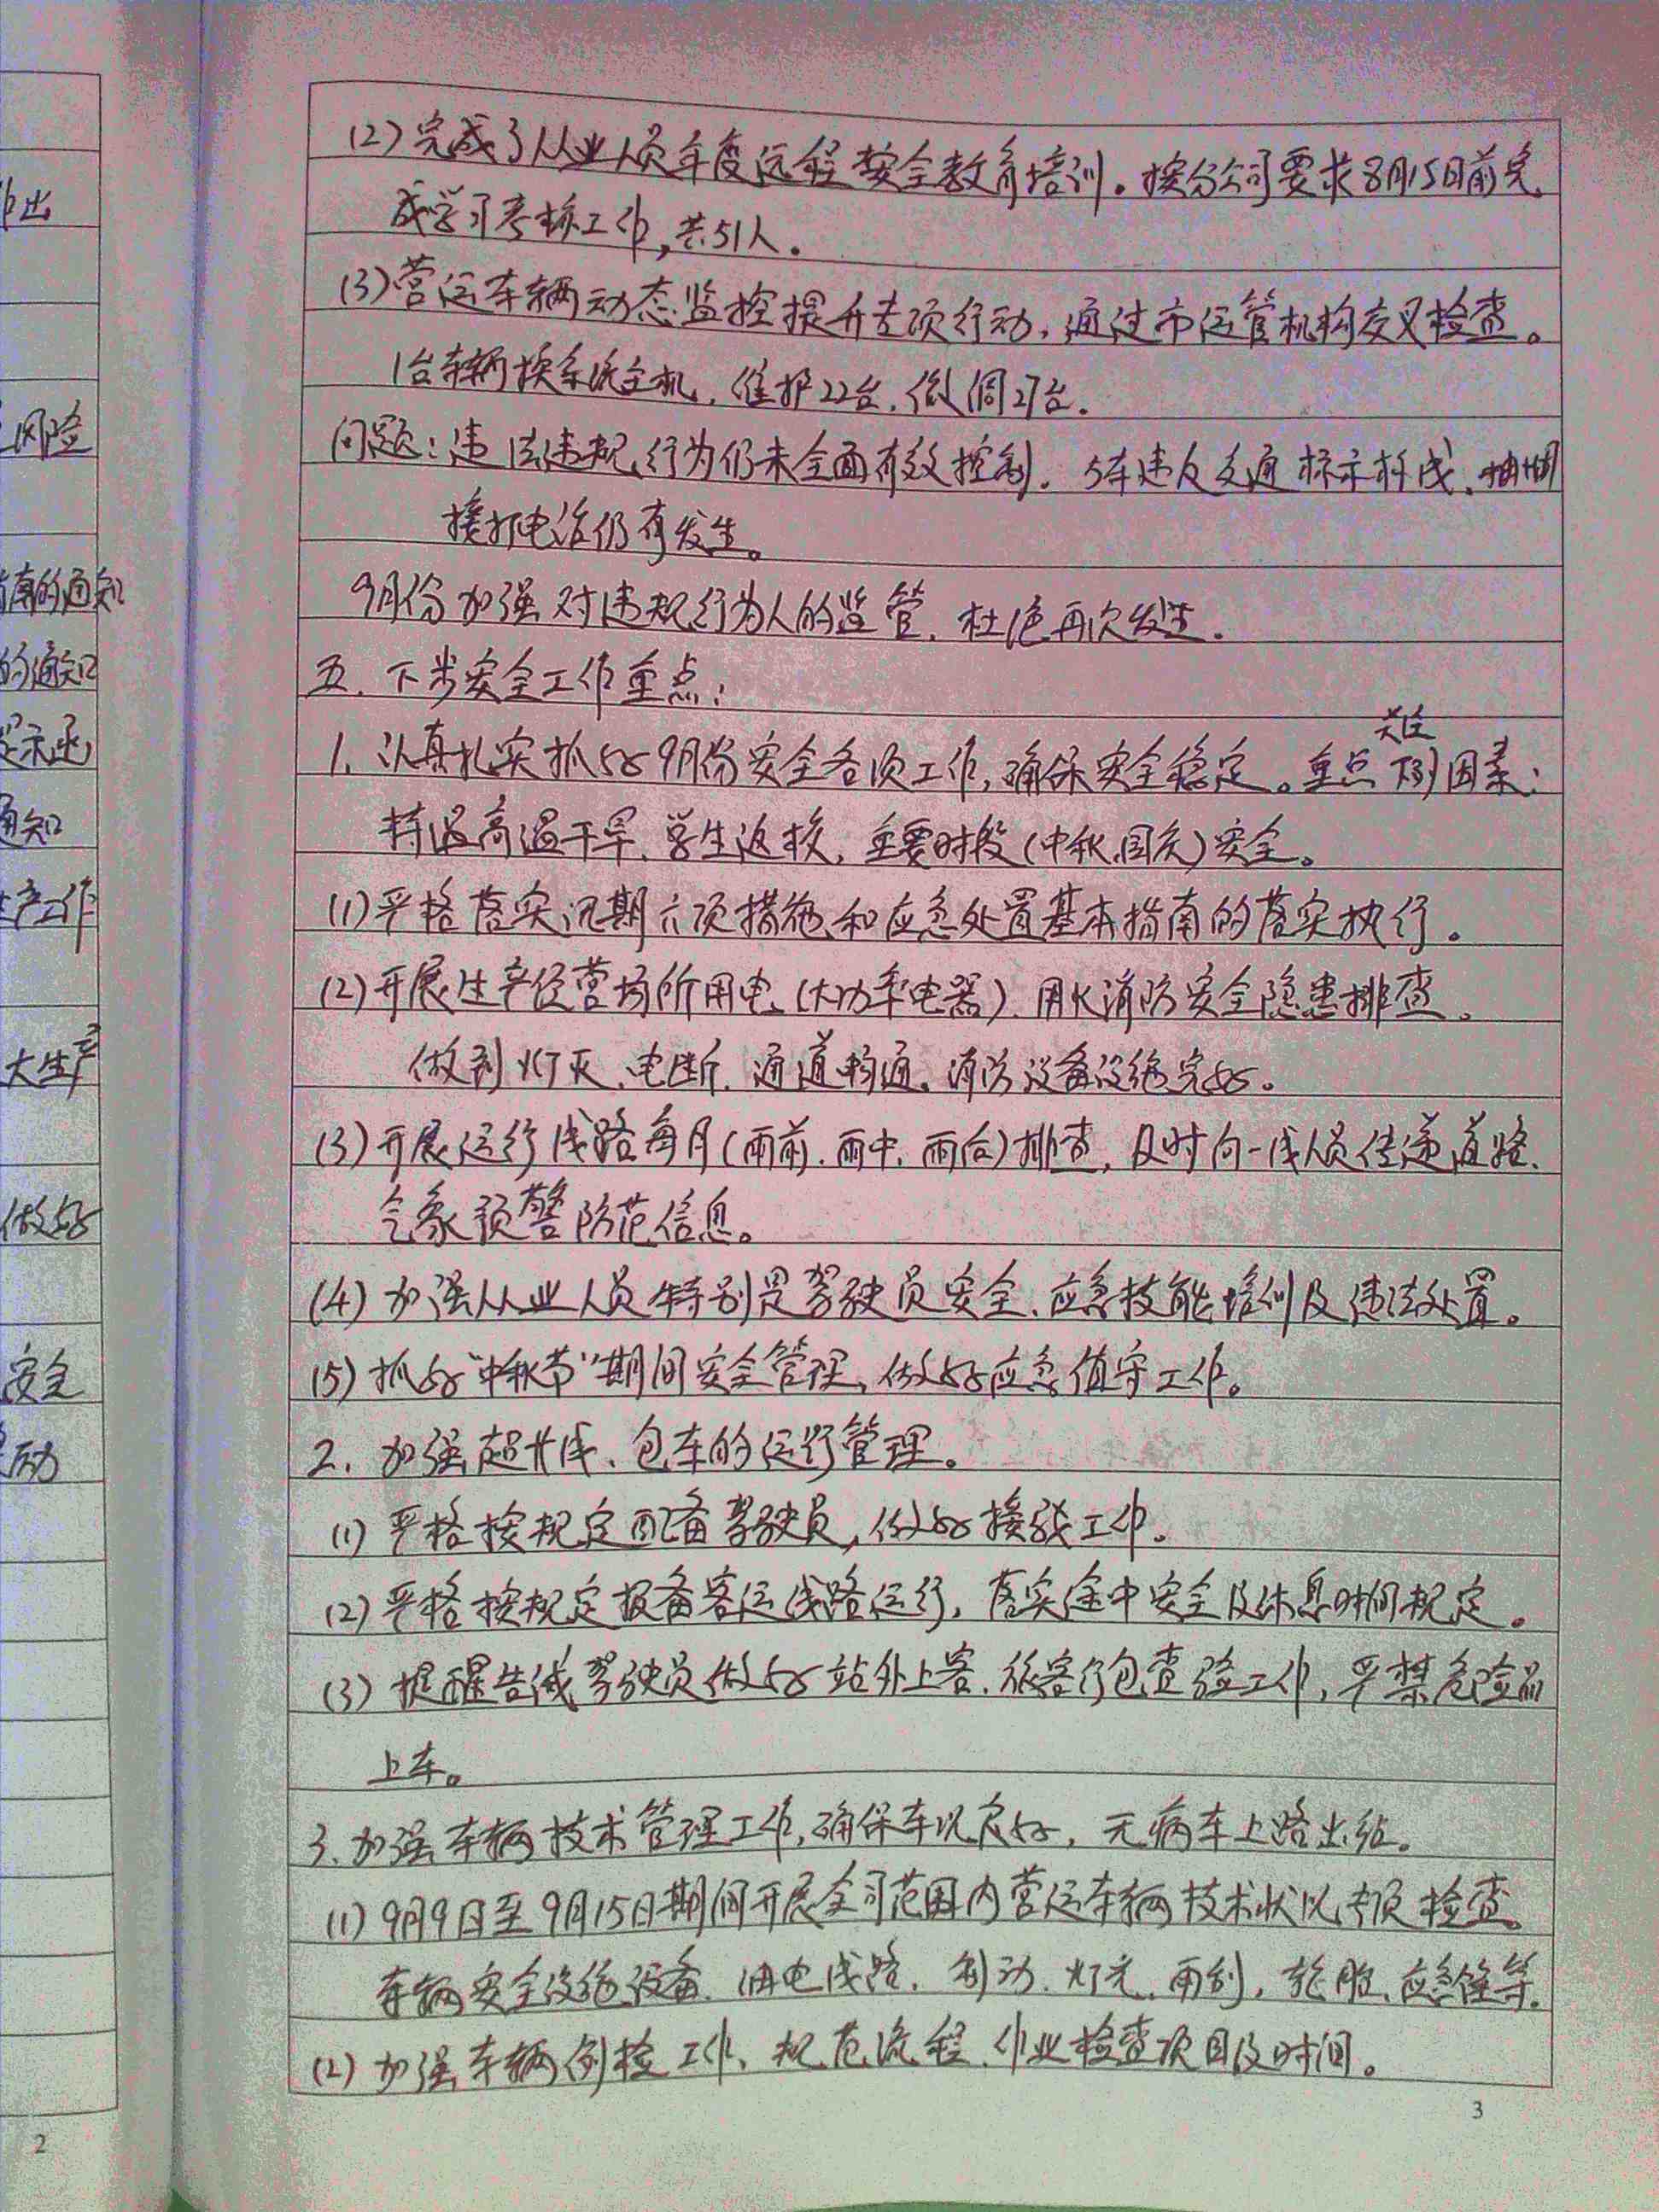 作出
风险
指南的通知
的通知
提示函
通知
生产工作
大生产
做好
安全
活动
2
(2)完成了从业人员年度远程安全教育培训。按分公司要求8月15日前完
成学习考核工作,共51人。
(3)营运车辆动态监控提升专项行动,通过市运管机构交叉检查。
1台车辆换系统主机,维护22台,微调27台.
问题:违法违规行为仍未全面有效控制. 5车违反交通标示标线、抽烟
接打电话仍有发生。
9月份加强对违规行为人的监管,杜绝再次发生.
五. 下步安全工作重点:
1. 认真扎实抓好9月份安全各项工作,确保安全稳定。重点关注下列因素:
持温高温干旱、学生返校,重要时段(中秋、国庆)安全。
(1)严格落实汛期六项措施和应急处置基本指南的落实执行。
(2)开展生产经营场所用电(大功率电器)、用火消防安全隐患排查。
做到灯灭、电断、通道畅通。消防设备设施完好。
(3)开展运行线路每月(雨前.雨中.雨后)排查,及时向一线人员传递道路、
气象预警防范信息。
(4)加强从业人员特别是驾驶员安全、应急技能培训及违法处置。
(5)抓好“中秋节”期间安全管理,做好应急值守工作。
2. 加强超长线、包车的运行管理。
(1)严格按规定配备驾驶员,做好接驳工作。
(2)严格按规定报备客运线路运行,落实途中安全及休息时间规定。
(3)提醒告诫驾驶员做好站外上客、旅客行包查验工作,严禁危险品
上车。
3.加强车辆技术管理工作,确保车况良好,无病车上路出站。
(1)9月9日至9月15日期间开展全司范围内营运车辆技术状况专项检查。
车辆安全设施设备、油电线路、制动、灯光、雨刮,轮胎、应急锤等.
(2)加强车辆例检工作、规范流程、作业检查项目及时间。
3